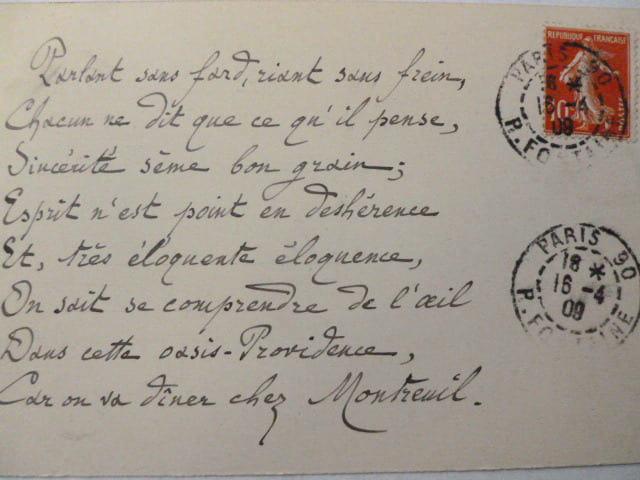 Parlant sans fard, riant sans frein,
Chacun ne dit que ce qu'il pense,
Sincérité sème bon grain;
Esprit n'est point en déshérence
Et, très éloquente éloquence,
On sait se comprendre de l'œil
Dans cette oasis-Providence,
Car on va dîner chez Montreuil.
REPUBLIQUE FRANÇAISE
10
PARIS 90
18 *
16 -4
09
R. FONTAINE
PARIS 90
18 *
16 -4
09
R. FONTAINE